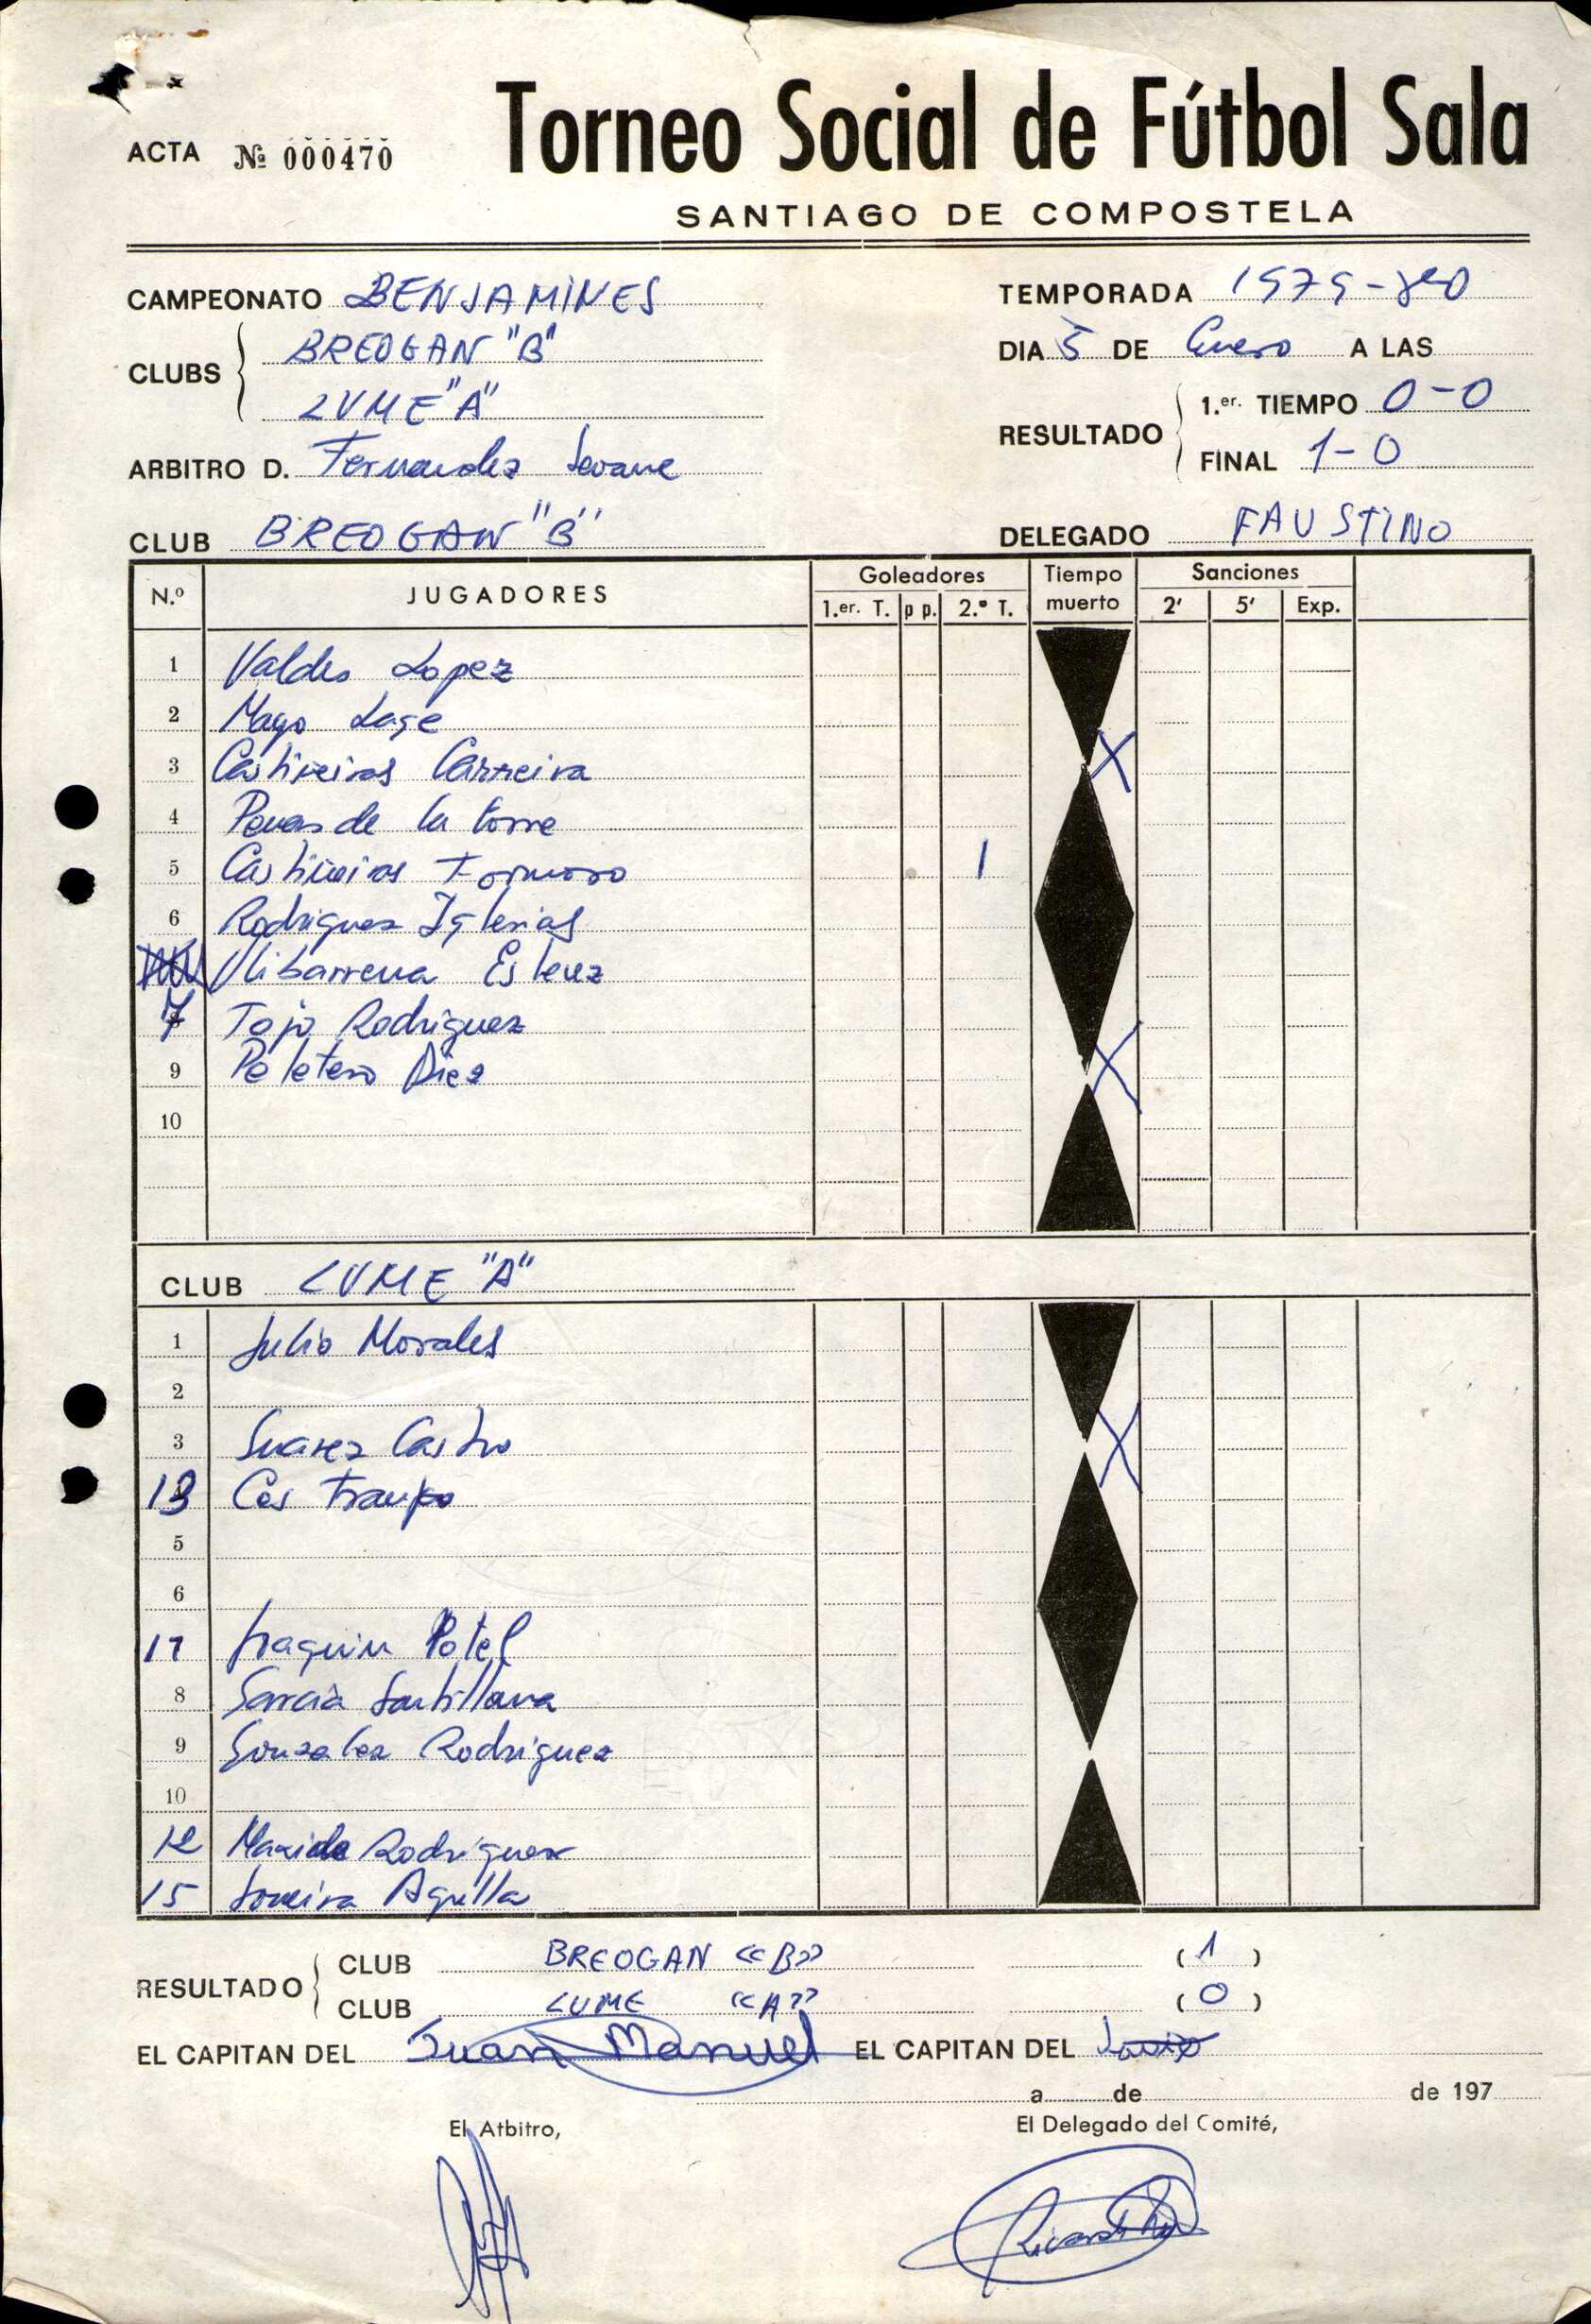 ACTA Nº 000470
Torneo Social de Fútbol Sala
SANTIAGO DE COMPOSTELA
CAMPEONATO BENJAMINES
TEMPORADA 1979-80
CLUBS BREOGAN "B"
LUME "A"
DIA 5 DE Enero A LAS
RESULTADO 1.er. TIEMPO 0-0
FINAL 1-0
ARBITRO D. Fernandez Seoane
CLUB BREOGAN "B"
DELEGADO FAUSTINO
N.º JUGADORES Goleadores Tiempo muerto Sanciones
1.er. T. p p. 2.º T. 2' 5' Exp.
1 Valdes Lopez
2 Mago Lage
3 Castiñeiras Carreira X
4 Penas de la torre
5 Castiñeiras Formoso 1
6 Rodriguez Iglesias
Ulibarrena Estevez
7 Tojo Rodriguez
9 Peleteiro Diez X
10
CLUB LUME "A"
1 Julio Morales
2
3 Suarez Castro X
13 Cos
5
6
17 Joaquin Potel
8 Garcia Santillana
9 Gonzalez Rodriguez
10
12 Rodriguez
15 Loureiro
RESULTADO CLUB BREOGAN «B» (1)
CLUB LUME «A» (0)
EL CAPITAN DEL Juan Manuel EL CAPITAN DEL
a de de 197
El Atbitro,
El Delegado del Comité,